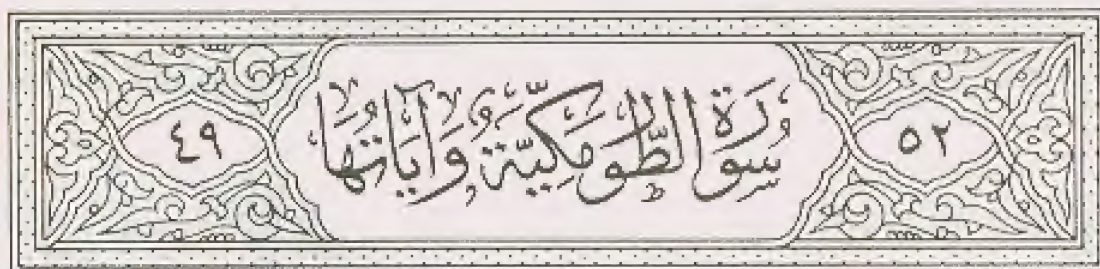 ٥٢ سُورَةُ الطُّورِ مَكِّيَّةٌ وَآيَاتُهَا ٤٩